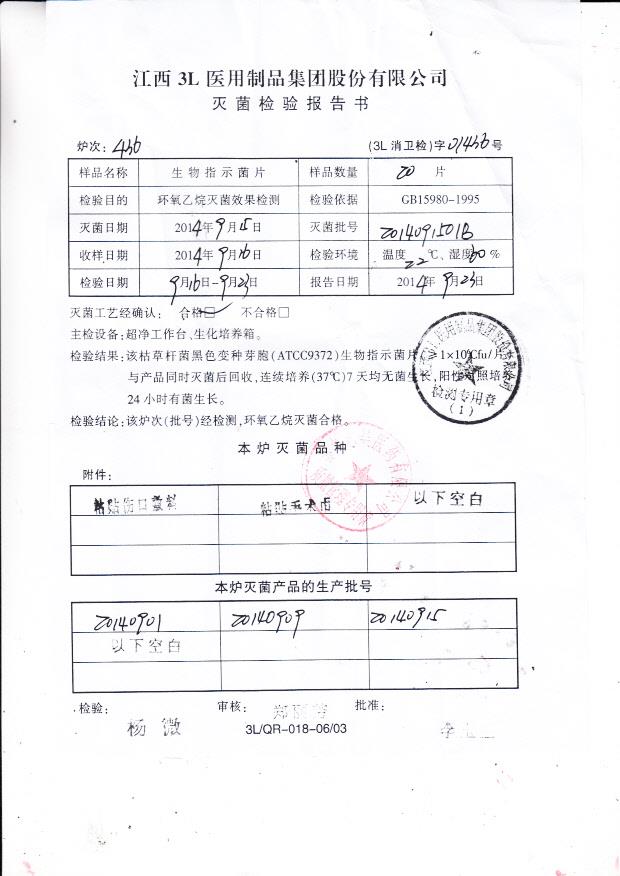 江西 3L 医用制品集团股份有限公司
灭菌检验报告书
炉次: 436 (3L 消卫检)字 01436 号
样品名称 生物指示菌片 样品数量 20 片
检验目的 环氧乙烷灭菌效果检测 检验依据 GB15980-1995
灭菌日期 2014年9月15日 灭菌批号 2014091501B
收样日期 2014年9月16日 检验环境 温度 22 ℃、湿度 60 %
检验日期 9月16日-9月23日 报告日期 2014年9月23日
灭菌工艺经确认: 合格☑ 不合格□
主检设备:超净工作台、生化培养箱。
检验结果:该枯草杆菌黑色变种芽胞(ATCC9372)生物指示菌片 1×10⁶cfu/片
与产品同时灭菌后回收,连续培养(37℃)7天均无菌生长,阳性对照培
24小时有菌生长。
检测专用章
(1)
检验结论:该炉次(批号)经检测,环氧乙烷灭菌合格。
本炉灭菌品种
附件:
粘贴伤口敷料 粘贴手术巾 以下空白
本炉灭菌产品的生产批号
20140901 20140909 20140915
以下空白
检验: 审核: 批准:
杨微
3L/QR-018-06/03